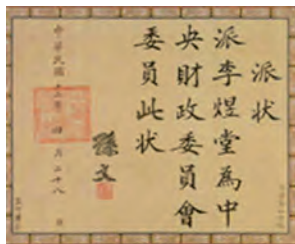 派状
派李煜堂為中
央財政委員會
委員此状
孫文
中華民國十三年四月二十八日